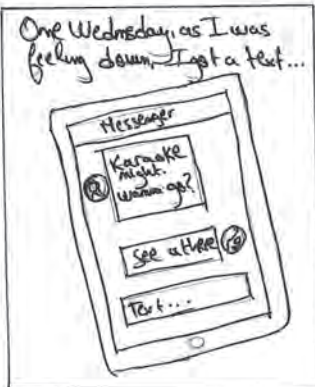 One Wednesday, as I was
feeling down, I got a text...
Messenger
Karaoke
night.
wanna go?
See u there
Text...